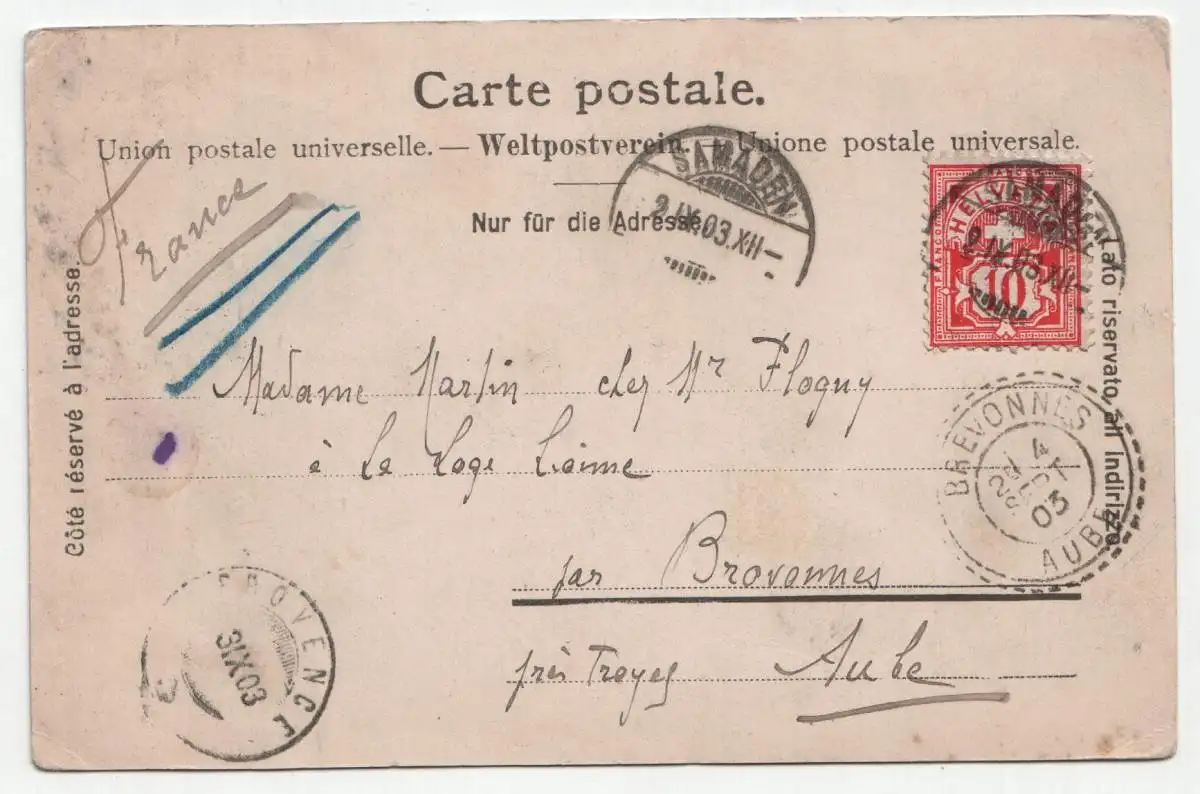 Carte postale.
Union postale universelle. — Weltpostverein. — Unione postale universale.
Nur für die Adresse.
Côté réservé à l'adresse.
Lato riservato all indirizzo.
France
SAMADEN
2.IX.03.XII—
HELVETIA
FRANCO
10
SAMADEN
2.IX.03.XII—
Madame Martin chez Mr Flogny
à La Loge
par Brovonnes
près Troyes Aube
BREVONNES
4
SEPT
03
AUBE
PROVENCE
3 IX 03